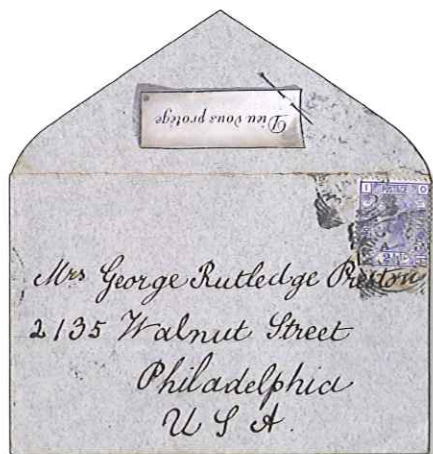 Dieu vous protège
Mrs George Rutledge Preston
2135 Walnut Street
Philadelphia
U S A.